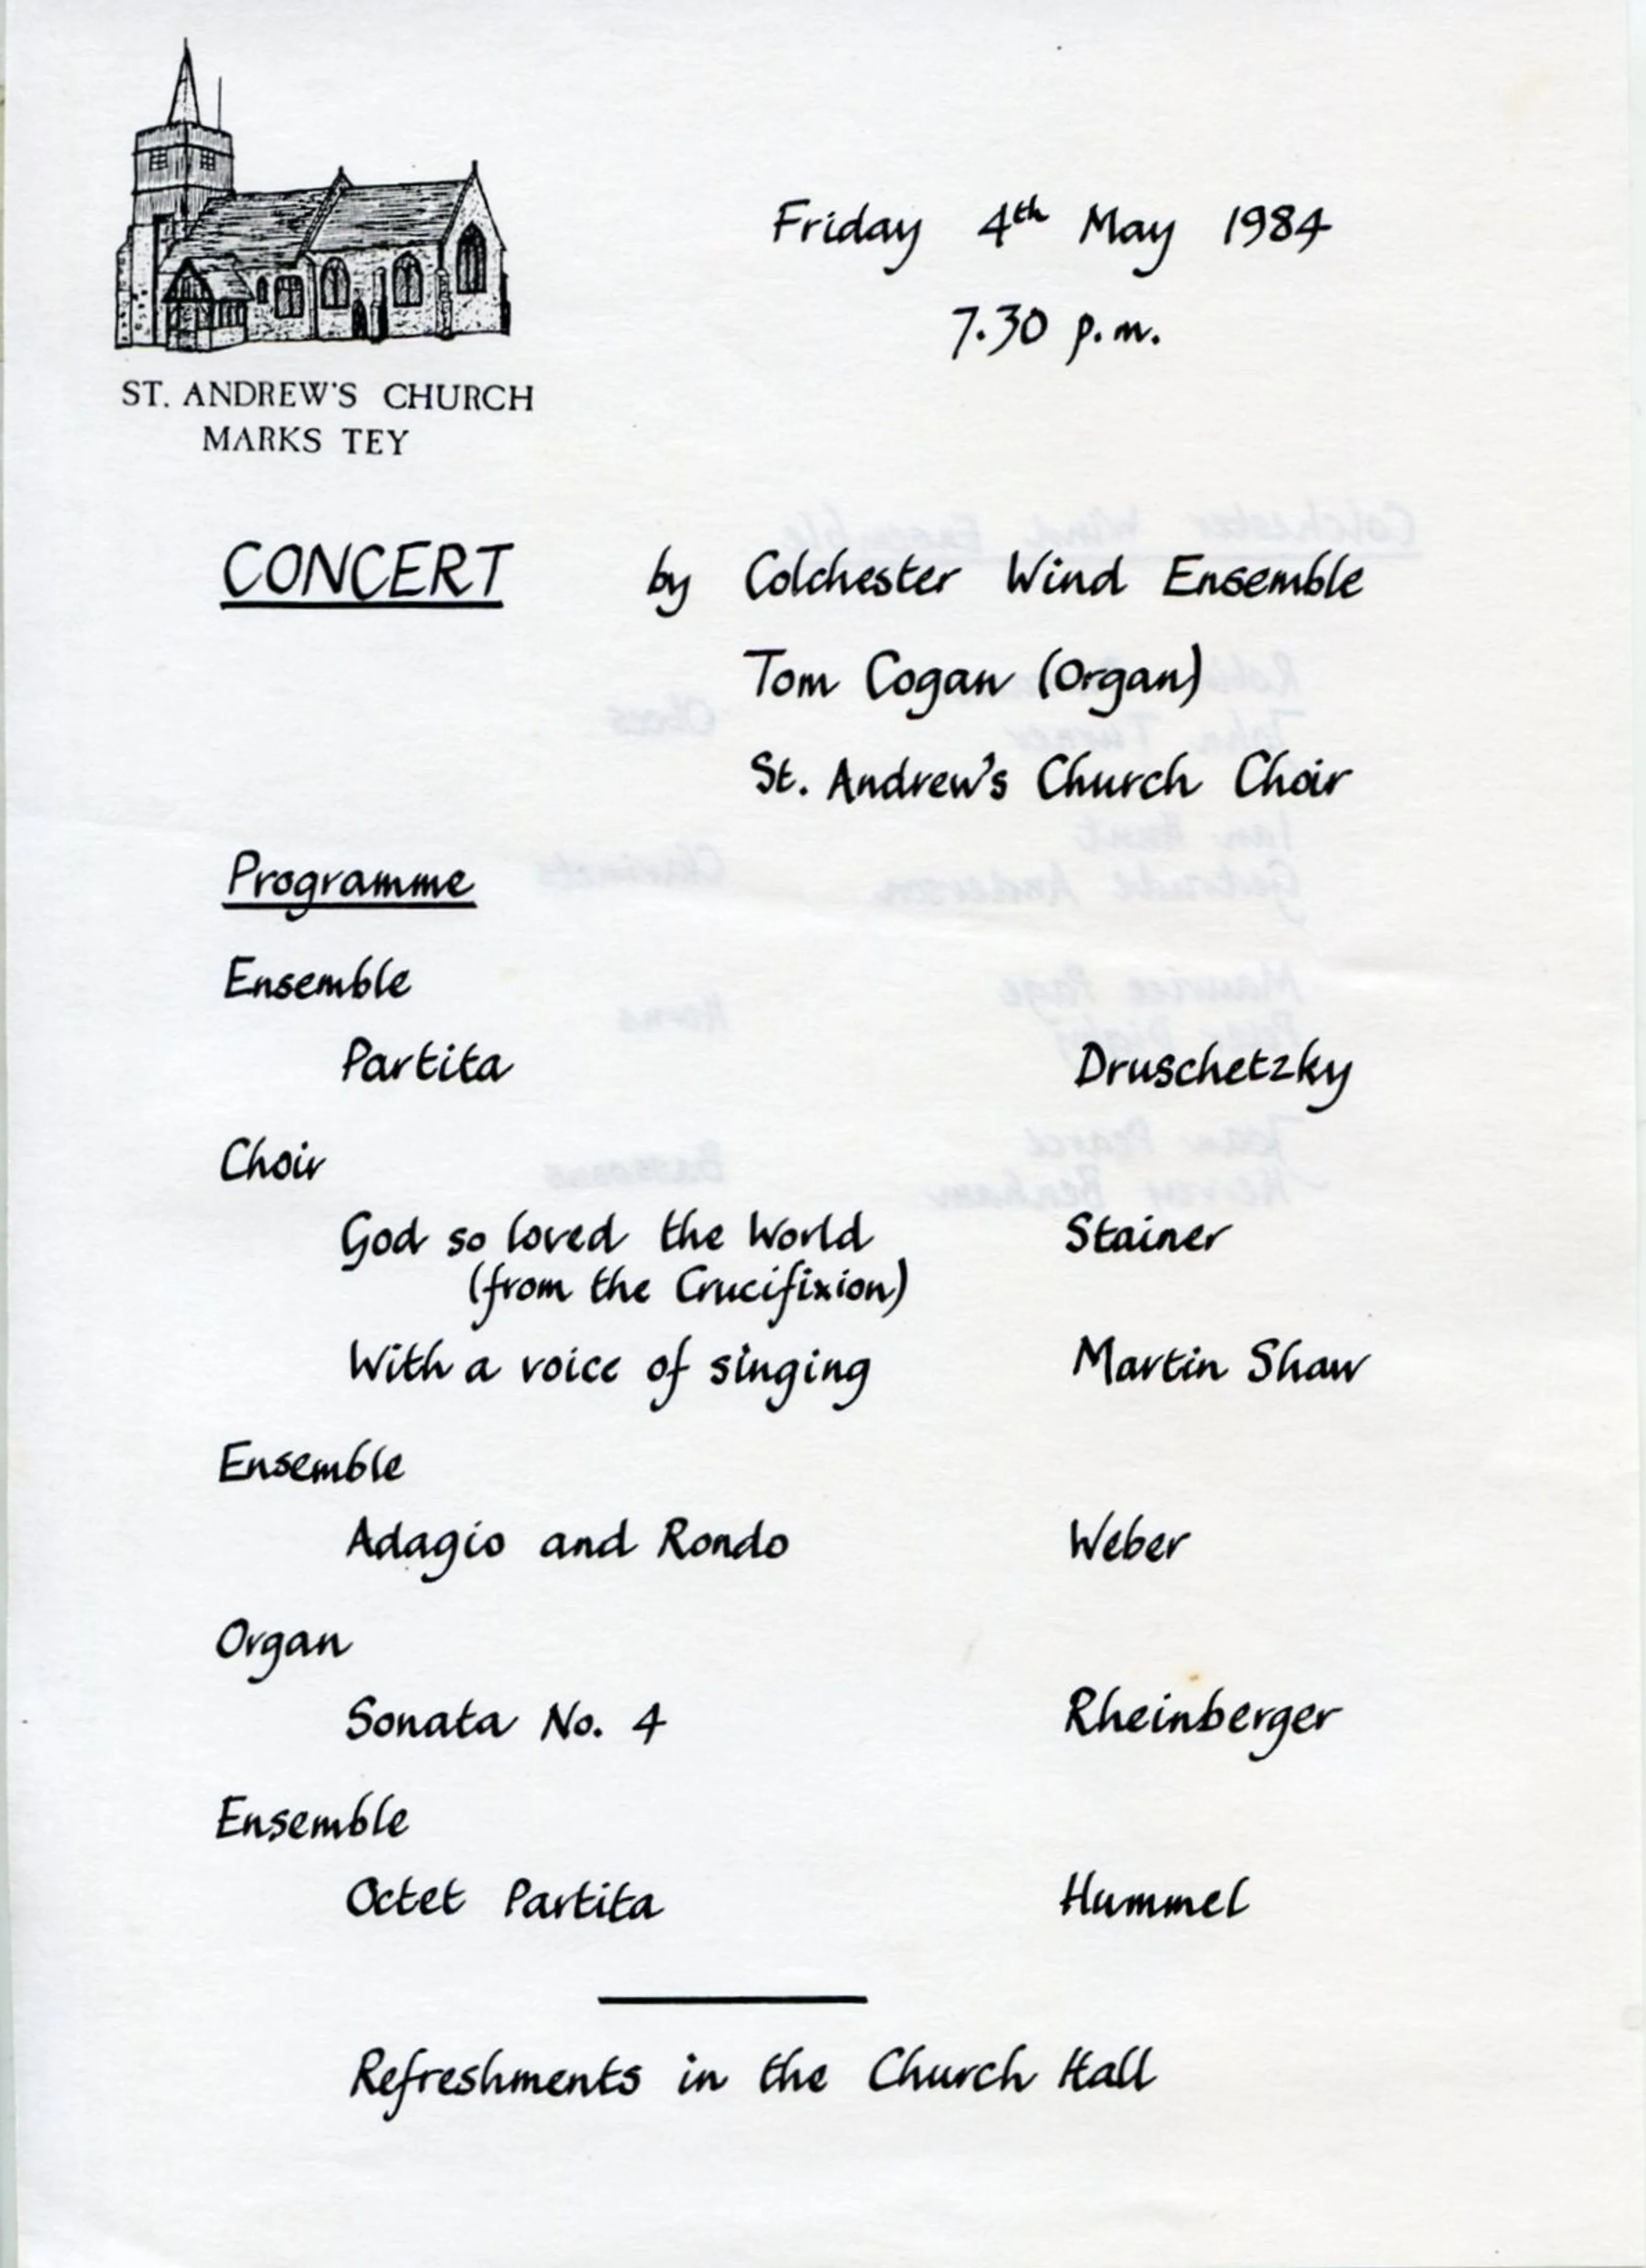 Friday 4th May 1984
7.30 p.m.
ST. ANDREW'S CHURCH
MARKS TEY
CONCERT by Colchester Wind Ensemble
Tom Cogan (Organ)
St. Andrew's Church Choir
Programme
Ensemble
Partita Druschetzky
Choir
God so loved the World Stainer
(from the Crucifixion)
With a voice of singing Martin Shaw
Ensemble
Adagio and Rondo Weber
Organ
Sonata No. 4 Rheinberger
Ensemble
Octet Partita Hummel
Refreshments in the Church Hall